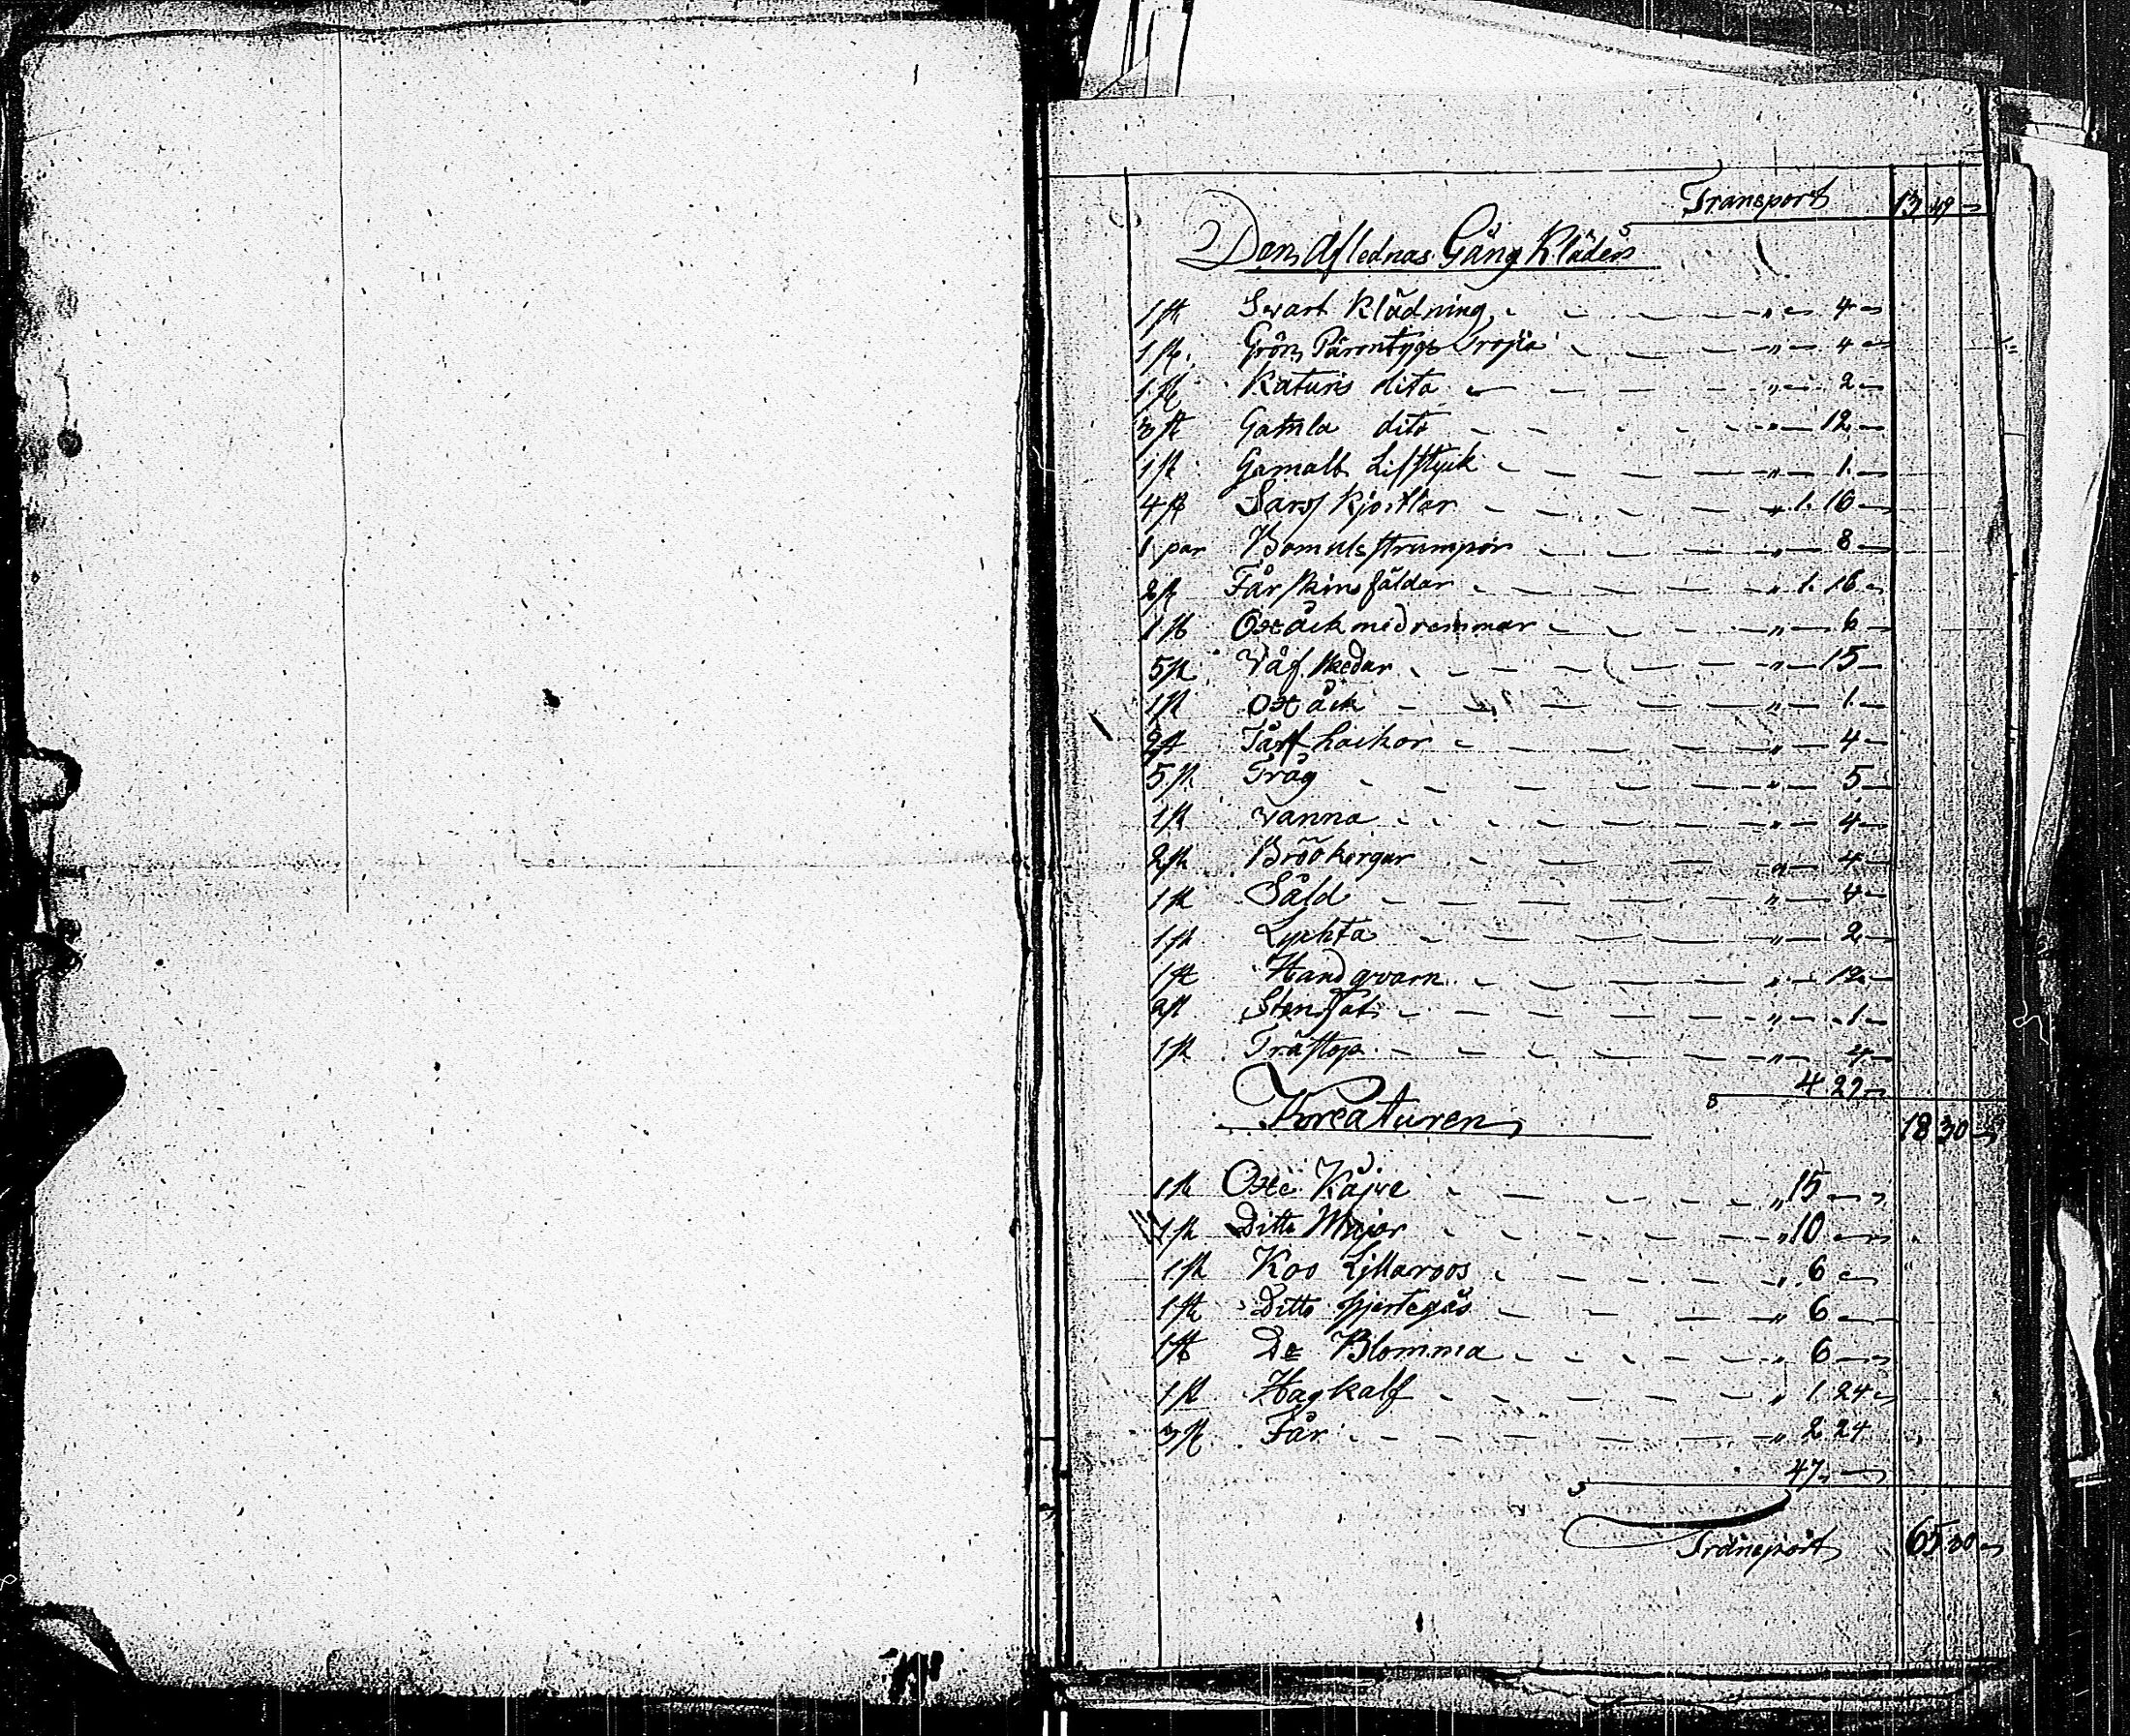 Transport 13 49 —
Den Aflednas Gång Kläder
1 st Swart Klädning " — 4 —
1 st. Grön Tröjia " — 4 —
1 st Katuns dito " — 2 —
3 st Gamla dito " — 12 —
1 st Gamalt Lifstyck " — 1. —
4 st Sars Kjortlar " 1. 16 —
1 par Bomulsstrumpor " — 8 —
2 st Fårskinsfäldar " 1. 16 —
1 st Oxeåck med remmar " — 6 —
5 st Väfskedar " — 15 —
1 st Oxåck " — 1. —
2 st hackor " — 4 —
5 st Tråg " — 5 —
1 st vanna " — 4 —
2 st Brödkorgar " — 4 —
1 st Såld " — 4 —
1 st Lyckta " — 2 —
1 st Handqvarn " — 12 —
2 st Stenfat " — 1 —
1 st Trästop " — 4 —
4 29 —
Kreaturen 18 30 —
1 st Oxe " 15 —
1 st Ditto Major " 10 —
1 st Koo Liljaroos " 6 —
1 st Ditto " 6 —
1 st Do Blomma " 6 —
1 st Kalf " 1 24 —
3 st Får " 2 24
47. —
Transport 65 30 —